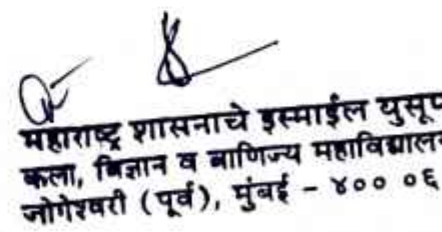 महाराष्ट्र शासनाचे इस्माईल युसूफ
कला, विज्ञान व वाणिज्य महाविद्यालय
जोगेश्वरी (पूर्व), मुंबई - ४०० ०६